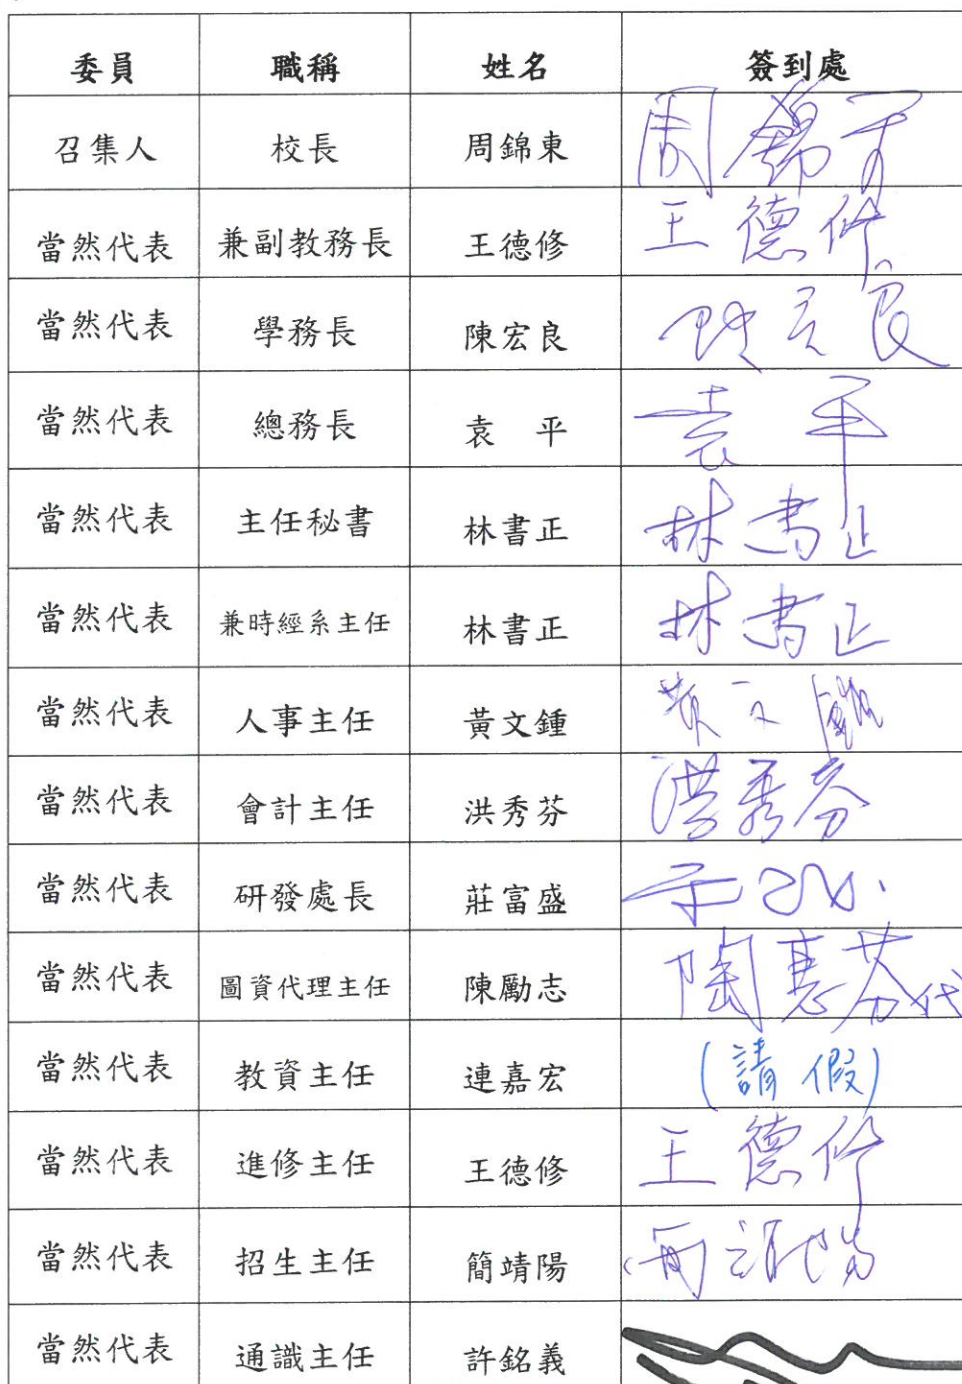 委員 職稱 姓名 簽到處
召集人 校長 周錦東 周錦东
當然代表 兼副教務長 王德修 王德修
當然代表 學務長 陳宏良 陳宏良
當然代表 總務長 袁 平 袁平
當然代表 主任秘書 林書正 林書正
當然代表 兼時經系主任 林書正 林書正
當然代表 人事主任 黃文鍾 黃文鍾
當然代表 會計主任 洪秀芬 洪秀芬
當然代表 研發處長 莊富盛
當然代表 圖資代理主任 陳勵志 陶惠芬代
當然代表 教資主任 連嘉宏 (請假)
當然代表 進修主任 王德修 王德修
當然代表 招生主任 簡靖陽 簡靖陽
當然代表 通識主任 許銘義